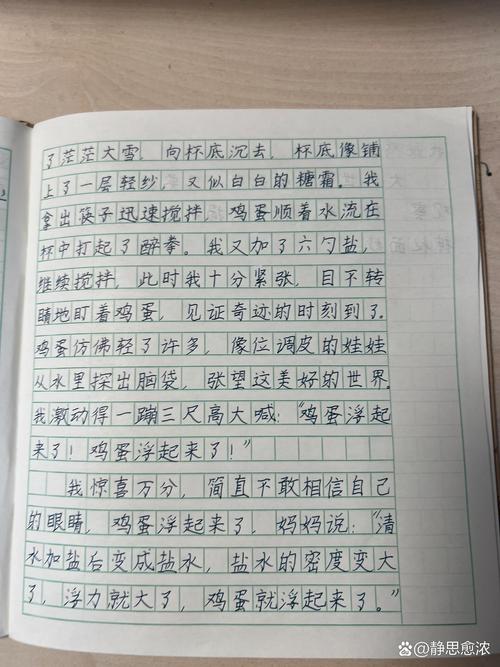 了茫茫大雪，向杯底沉去，杯底像铺
上了一层轻纱，又似白白的糖霜。我
拿出筷子迅速搅拌，鸡蛋顺着水流在
杯中打起了醉拳。我又加了六勺盐，
继续搅拌，此时我十分紧张，目不转
睛地盯着鸡蛋，见证奇迹的时刻到了。
鸡蛋仿佛轻了许多，像位调皮的娃娃
从水里探出脑袋，张望这美好的世界。
我激动得一蹦三尺高大喊：“鸡蛋浮起
来了！鸡蛋浮起来了！”
我惊喜万分，简直不敢相信自己
的眼睛，鸡蛋浮起来了，妈妈说：“清
水加盐后变成盐水，盐水的密度变大
了，浮力就大了，鸡蛋就浮起来了。”
@静思愈浓